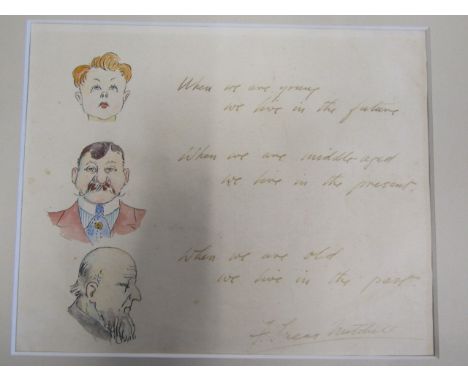 When we are young
we live in the future
When we are middle aged
we live in the present.
When we are old
we live in the past.
Mitchell